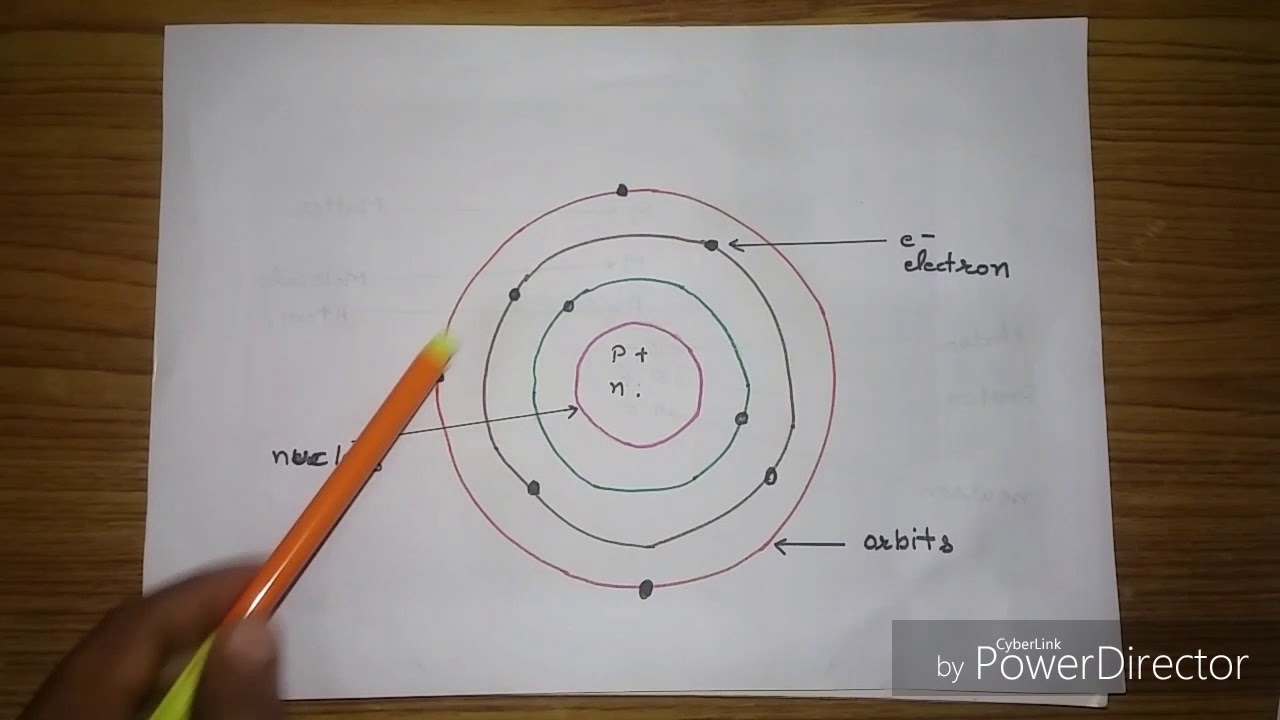 e-
electron
P +
n .
orbits
CyberLink
by PowerDirector